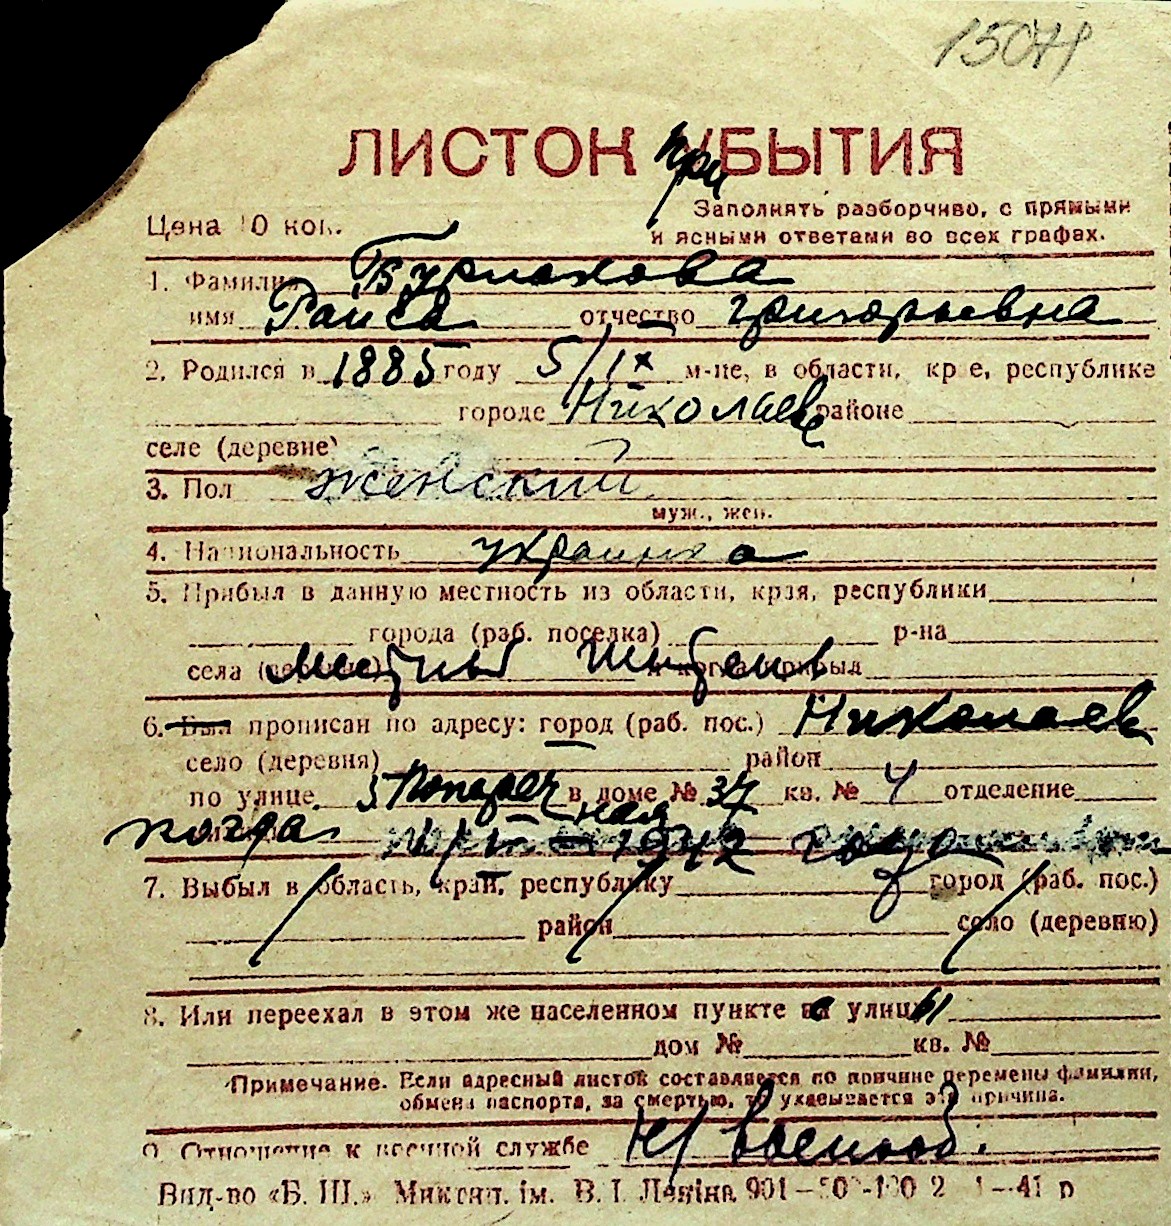 15071
ЛИСТОК при УБЫТИЯ
Заполнять разборчиво, с прямыми
Цена 10 коп. и ясными ответами во всех графах.
1. Фамилия Бурлакова
имя Раиса отчество Григорьевна
2. Родился в 1885 году 5/IX м-це, в области, крае, республике
городе Николаеве районе
селе (деревне)
3. Пол женский
муж., жен.
4. Национальность украинка
5. Прибыл в данную местность из области, края, республики
города (раб. поселка) р-на
села (деревни) местный житель и когда прибыл
6. Был прописан по адресу: город (раб. пос.) Николаев
село (деревня) район
по улице 5 Поперечная в доме № 37 кв. № 4 отделение
когда 1942 года
7. Выбыл в область, край, республику город (раб. пос.)
район село (деревню)
8. Или переехал в этом же населенном пункте с улицы
дом № кв. №
Примечание. Если адресный листок составляется по причине перемены фамилии,
обмена паспорта, за смертью, то указывается эта причина.
9. Отношение к военной службе н/военнооб.
Вид-во «Б. Ш.» Микент. ім. В. І. Леніна 901—50